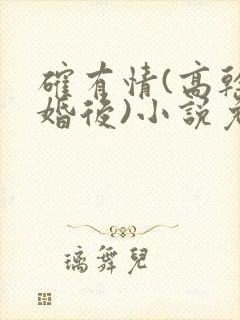 確有情(高幹
婚後)小說免
璃舞兒